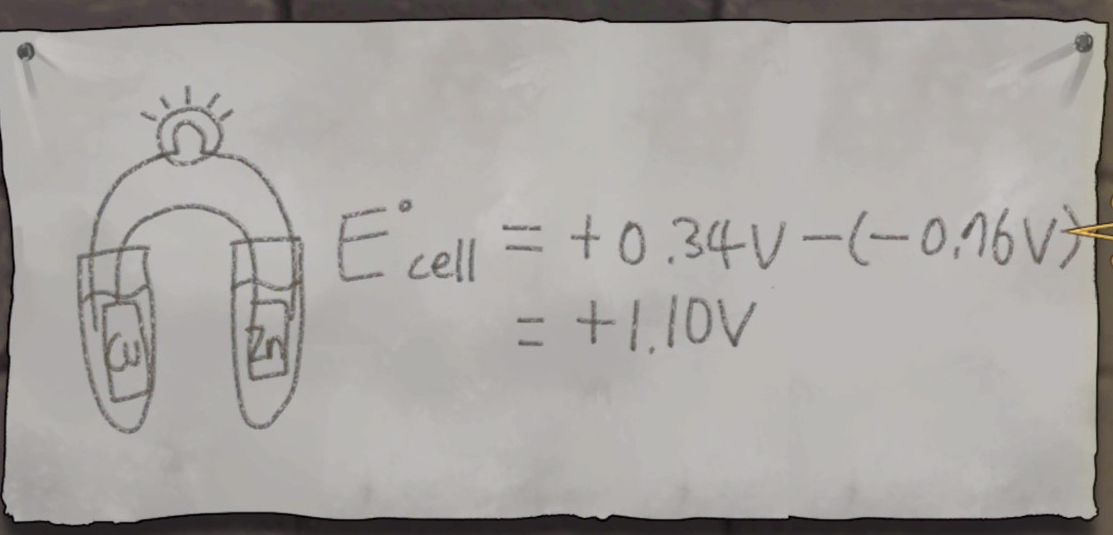 E°cell = +0.34V-(-0.76V)
= +1.10V
Zn